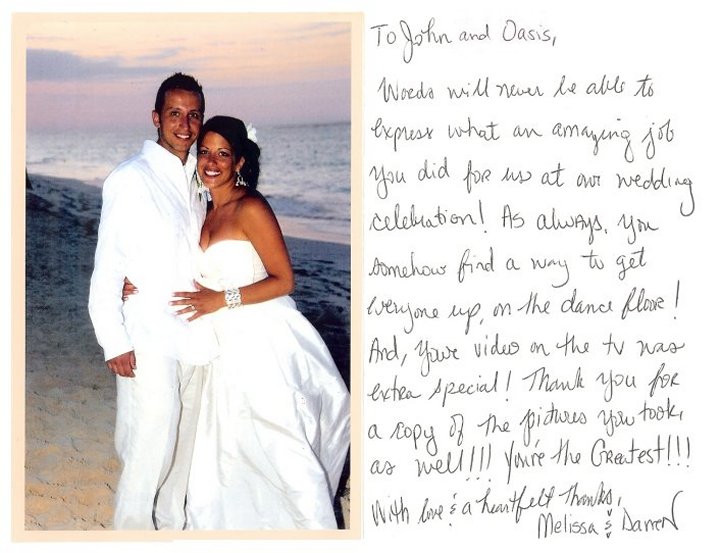 To John and Oasis,
Words will never be able to
express what an amazing job
you did for us at our wedding
celebration! As always, you
somehow find a way to get
everyone up, on the dance floor!
And, your video on the tv was
extra special! Thank you for
a copy of the pictures you took,
as well!!! You're the Greatest!!!
With love & a heartfelt thanks,
Melissa & Darren